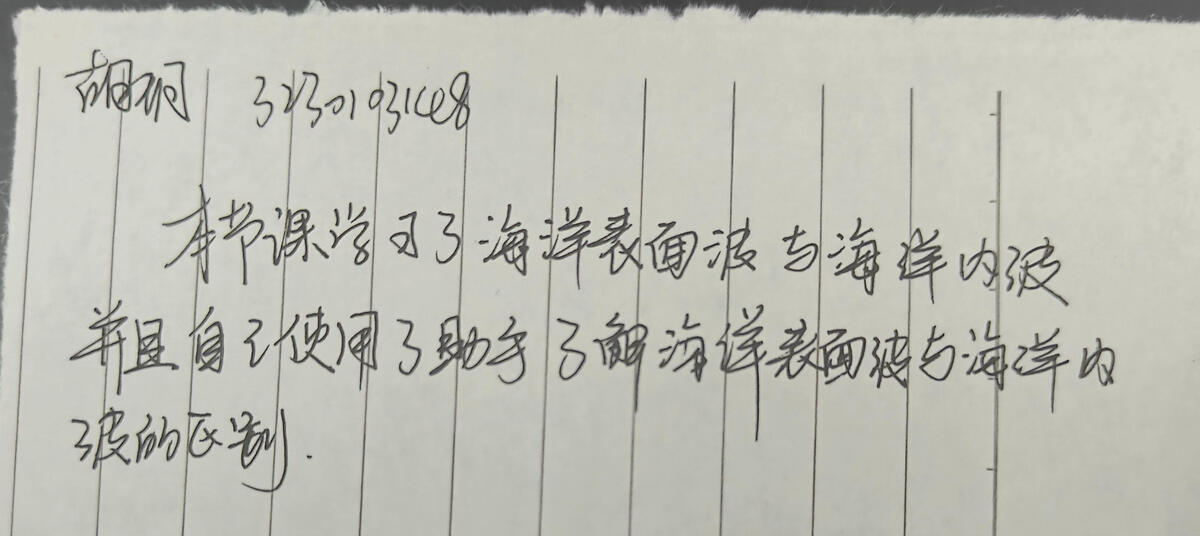 胡玥 3230103148
本节课学习了海洋表面波与海洋内波
并且自己使用了助手了解海洋表面波与海洋内
波的区别.